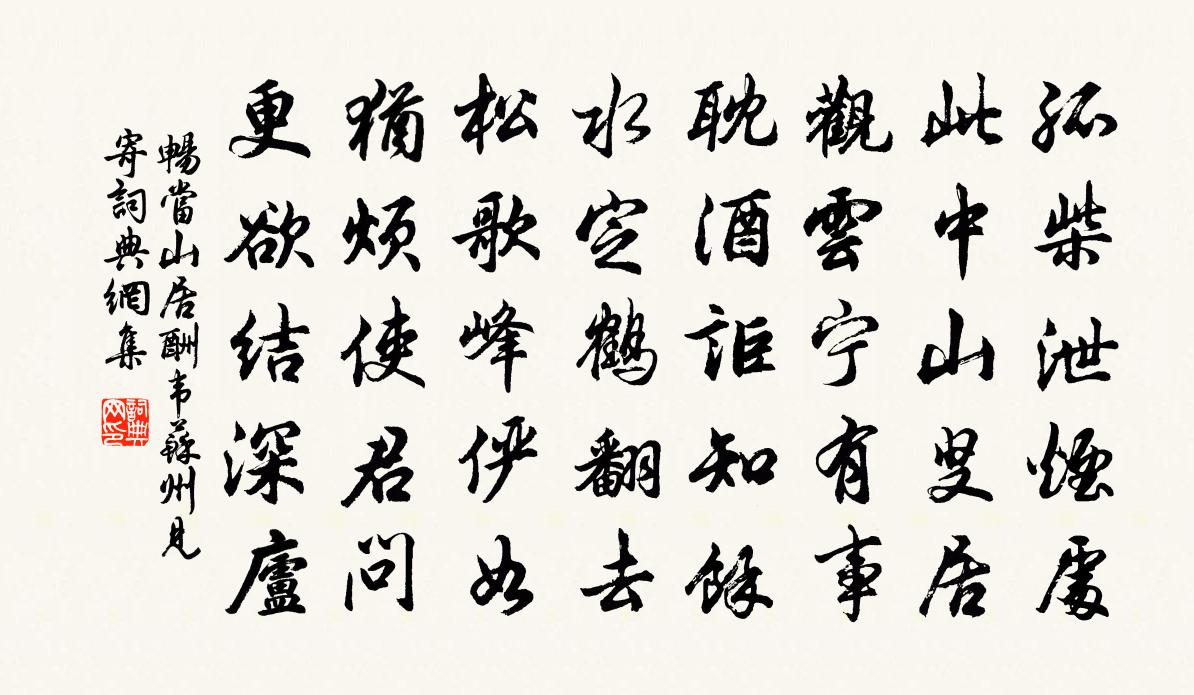 孤柴泄煙處
此中山叟居
觀雲宁有事
耽酒詎知餘
水定鶴翻去
松歌峰儼如
猶煩使君問
更欲结深廬
暢當山居酬韦蘇州見
寄詞典網集
詞典网印